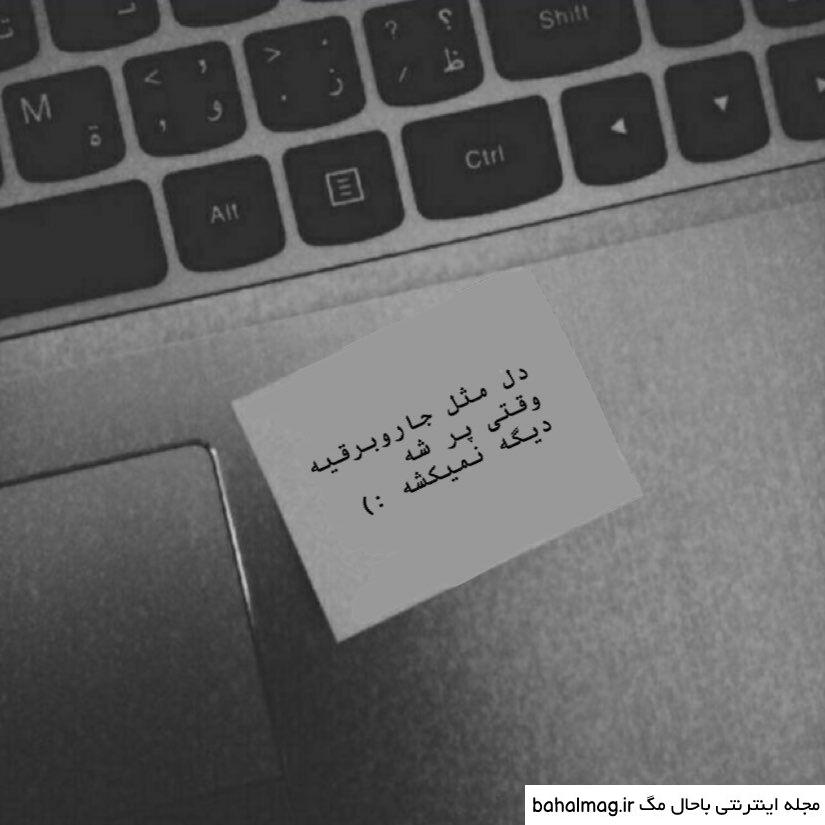 Shift
؟ ? ظ /
< . ز .
> , و ,
M ة
Ctrl
Alt
دل مثل جاروبرقیه
وقتی پر شه
دیگه نمیکشه :)
مجله اینترنتی باحال مگ bahalmag.ir